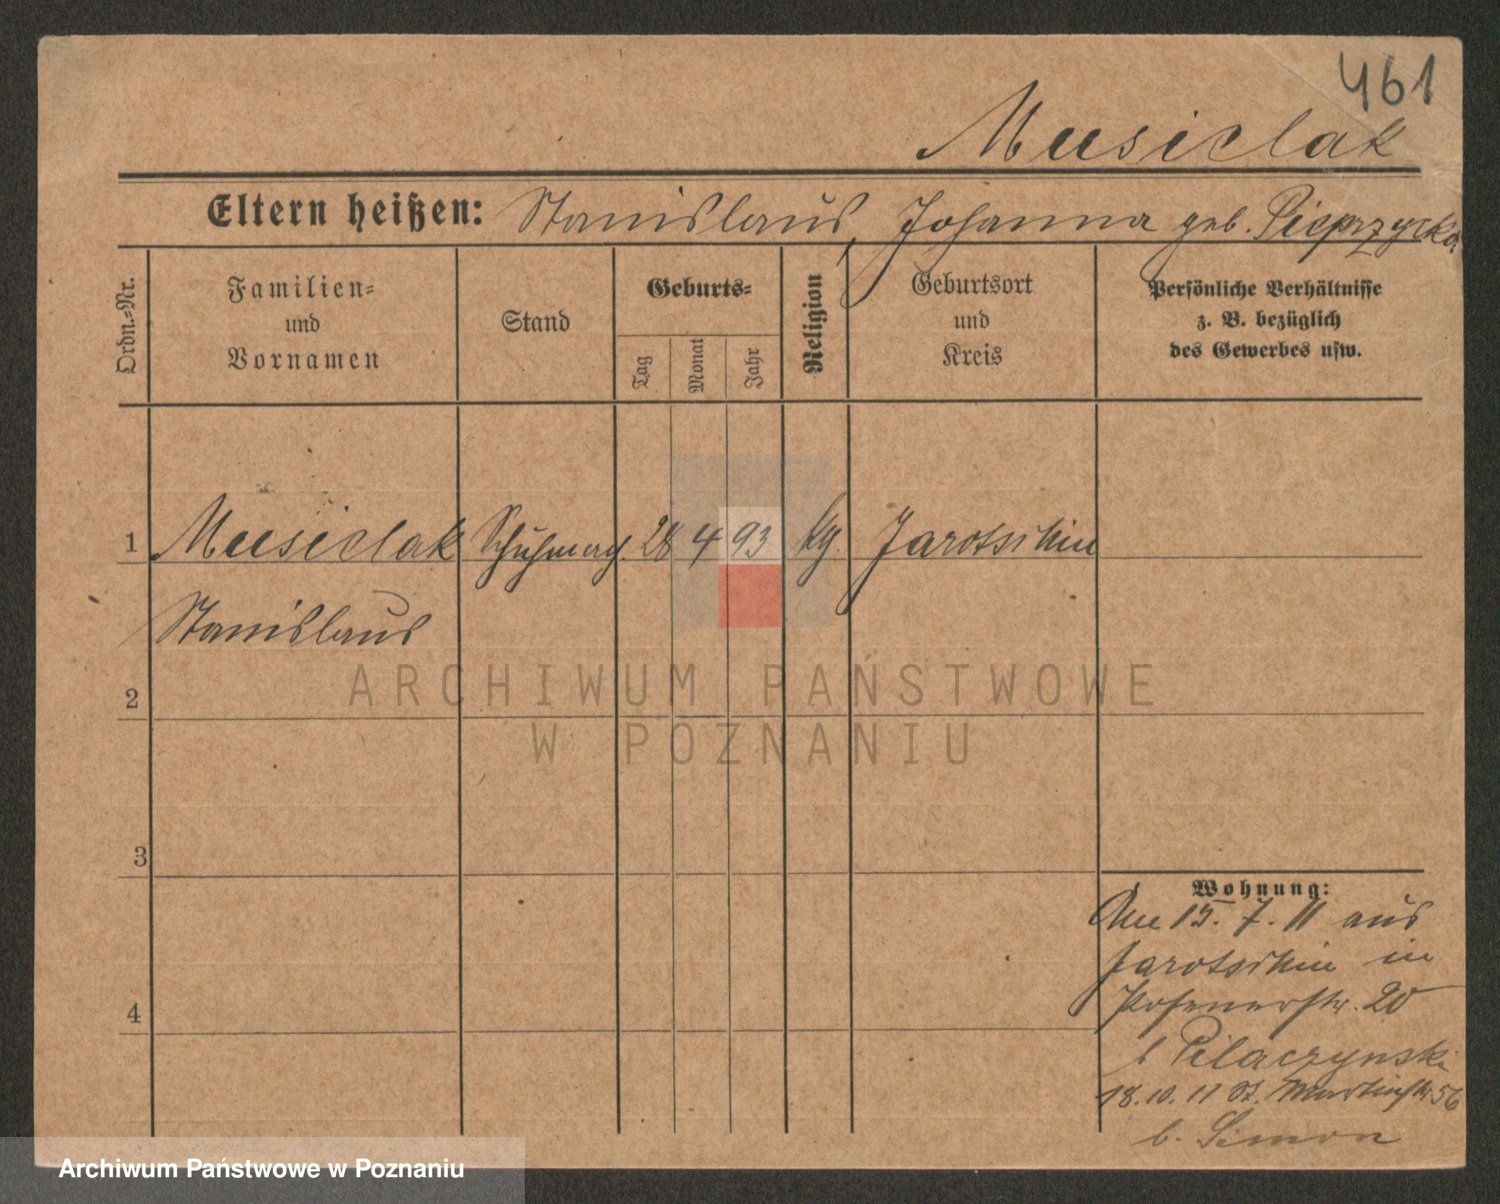 461
Musielak
Eltern heißen: Stanislaus, Johanna geb. Pieprzycka
Ordn.-Nr.
Familien-
und
Vornamen
Stand
Geburts-
Tag
Monat
Jahr
Religion
Geburtsort
und
Kreis
Persönliche Verhältnisse
z. B. bezüglich
des Gewerbes usw.
1 Musielak Schuhmach. 28 4 93 kg. Jarotschin
Stanislaus
ARCHIWUM PAŃSTWOWE
W POZNANIU
2
3
4
Wohnung:
Am 15. 7. 11 aus
Jarotschin in
Posenerstr. 20
b Pilaczynski
18. 10. 11 St. Martinstr. 56
b. Simon
Archiwum Państwowe w Poznaniu